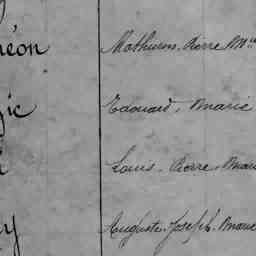 héon Mathurin, Pierre M
gic Edouard, Marie
Louis, Pierre, Marie
y Auguste, Joseph, Marie